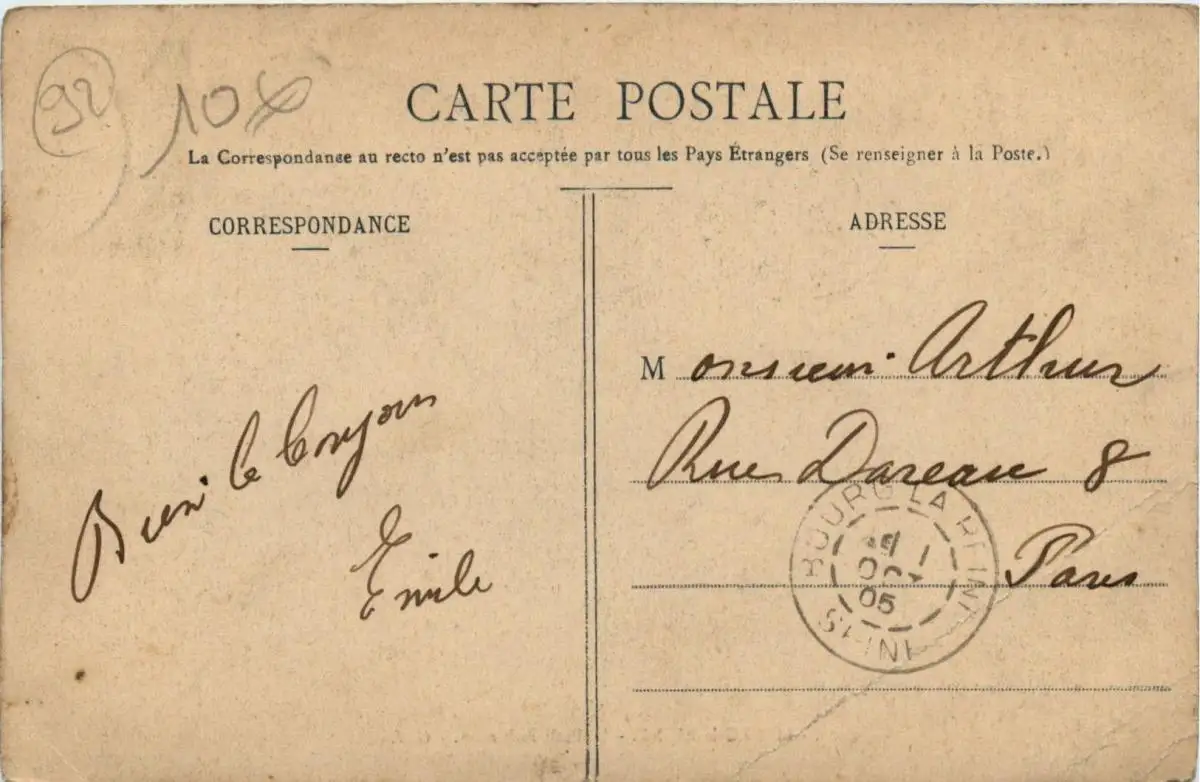 92
10x
CARTE POSTALE
La Correspondance au recto n'est pas acceptée par tous les Pays Étrangers (Se renseigner à la Poste.)
CORRESPONDANCE
ADRESSE
Monsieur Arthur
Rue Dareau 8
Paris
Bien le bonjour
Emile
BOURG LA REINE
05
SEINE